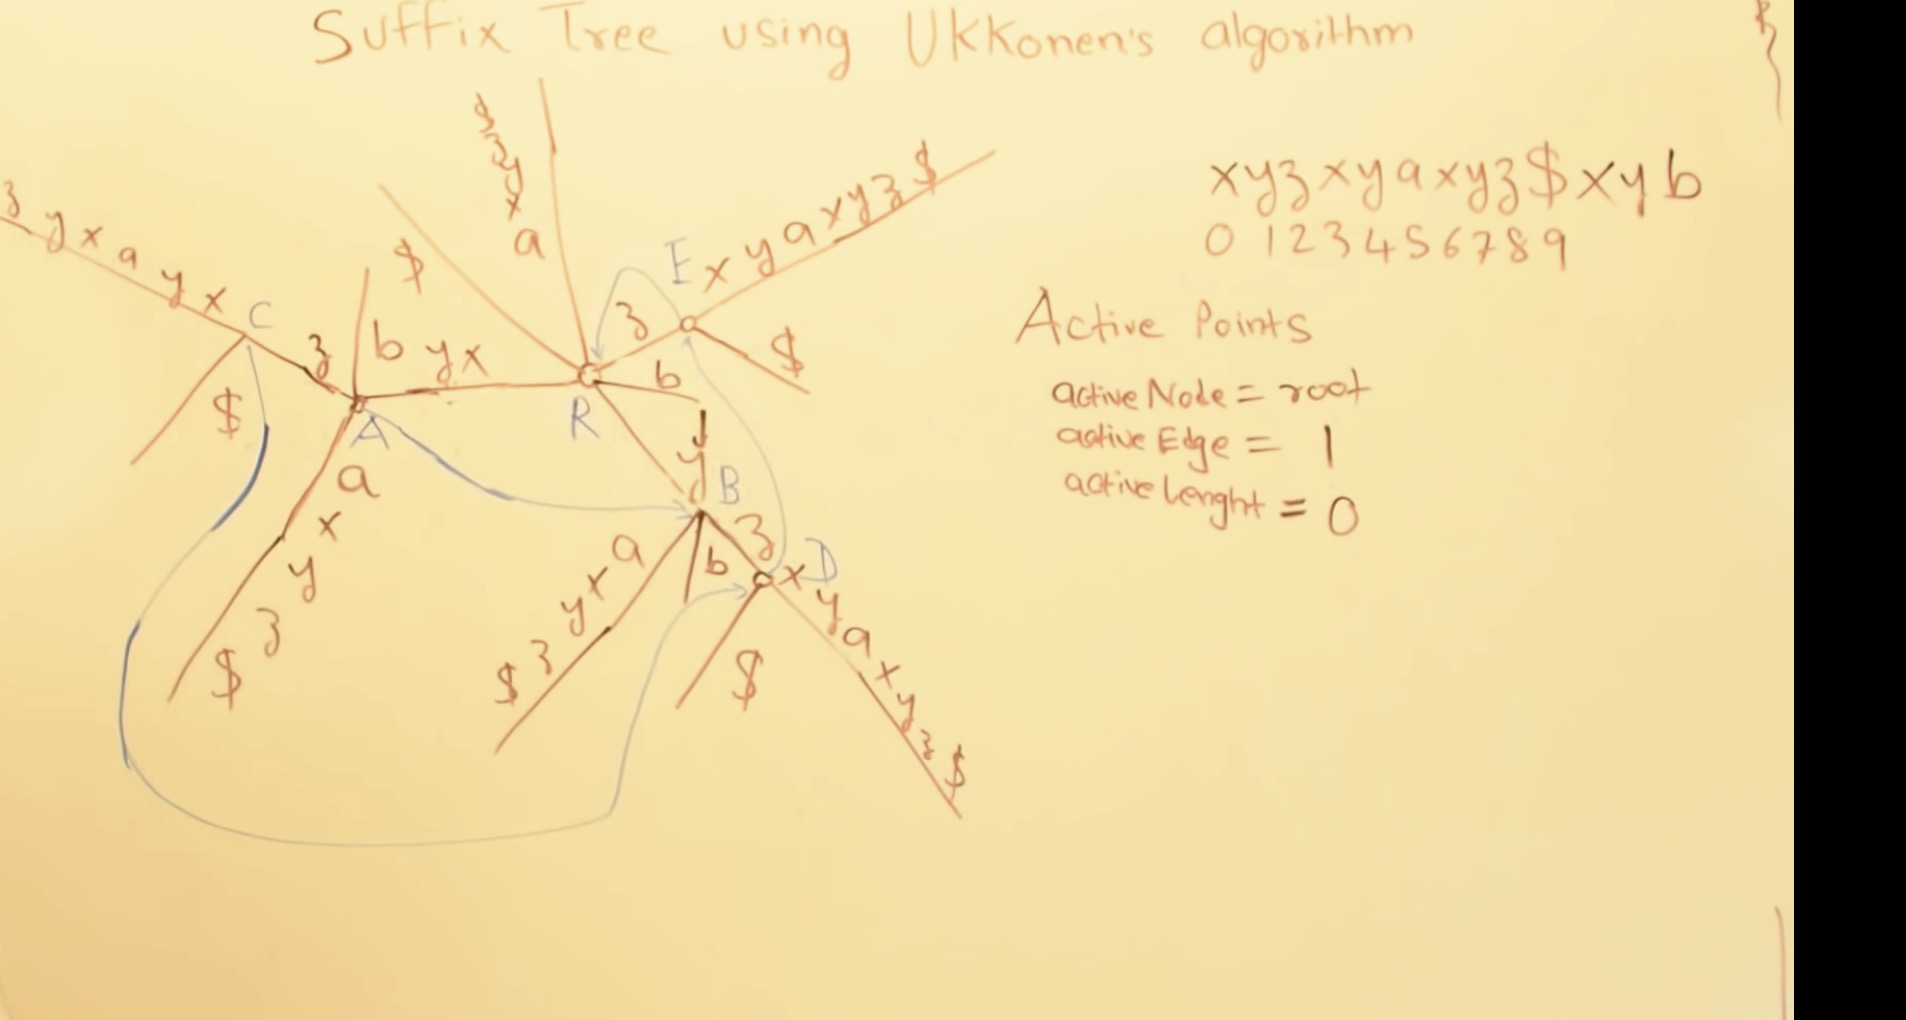 Suffix Tree using Ukkonen's algorithm
xyzxyaxyz$xyb
0 1 2 3 4 5 6 7 8 9
Active Points
active Node = root
active Edge = 1
active lenght = 0
$
z
y
x
a
E
x y a x y z $
z
$
z y x a y x
C
z
$
$
b
y x
b
R
A
y
B
a
x
y
z
$
a
x
y
z
$
b
z
D
x
y
a
x
y
z
$
$